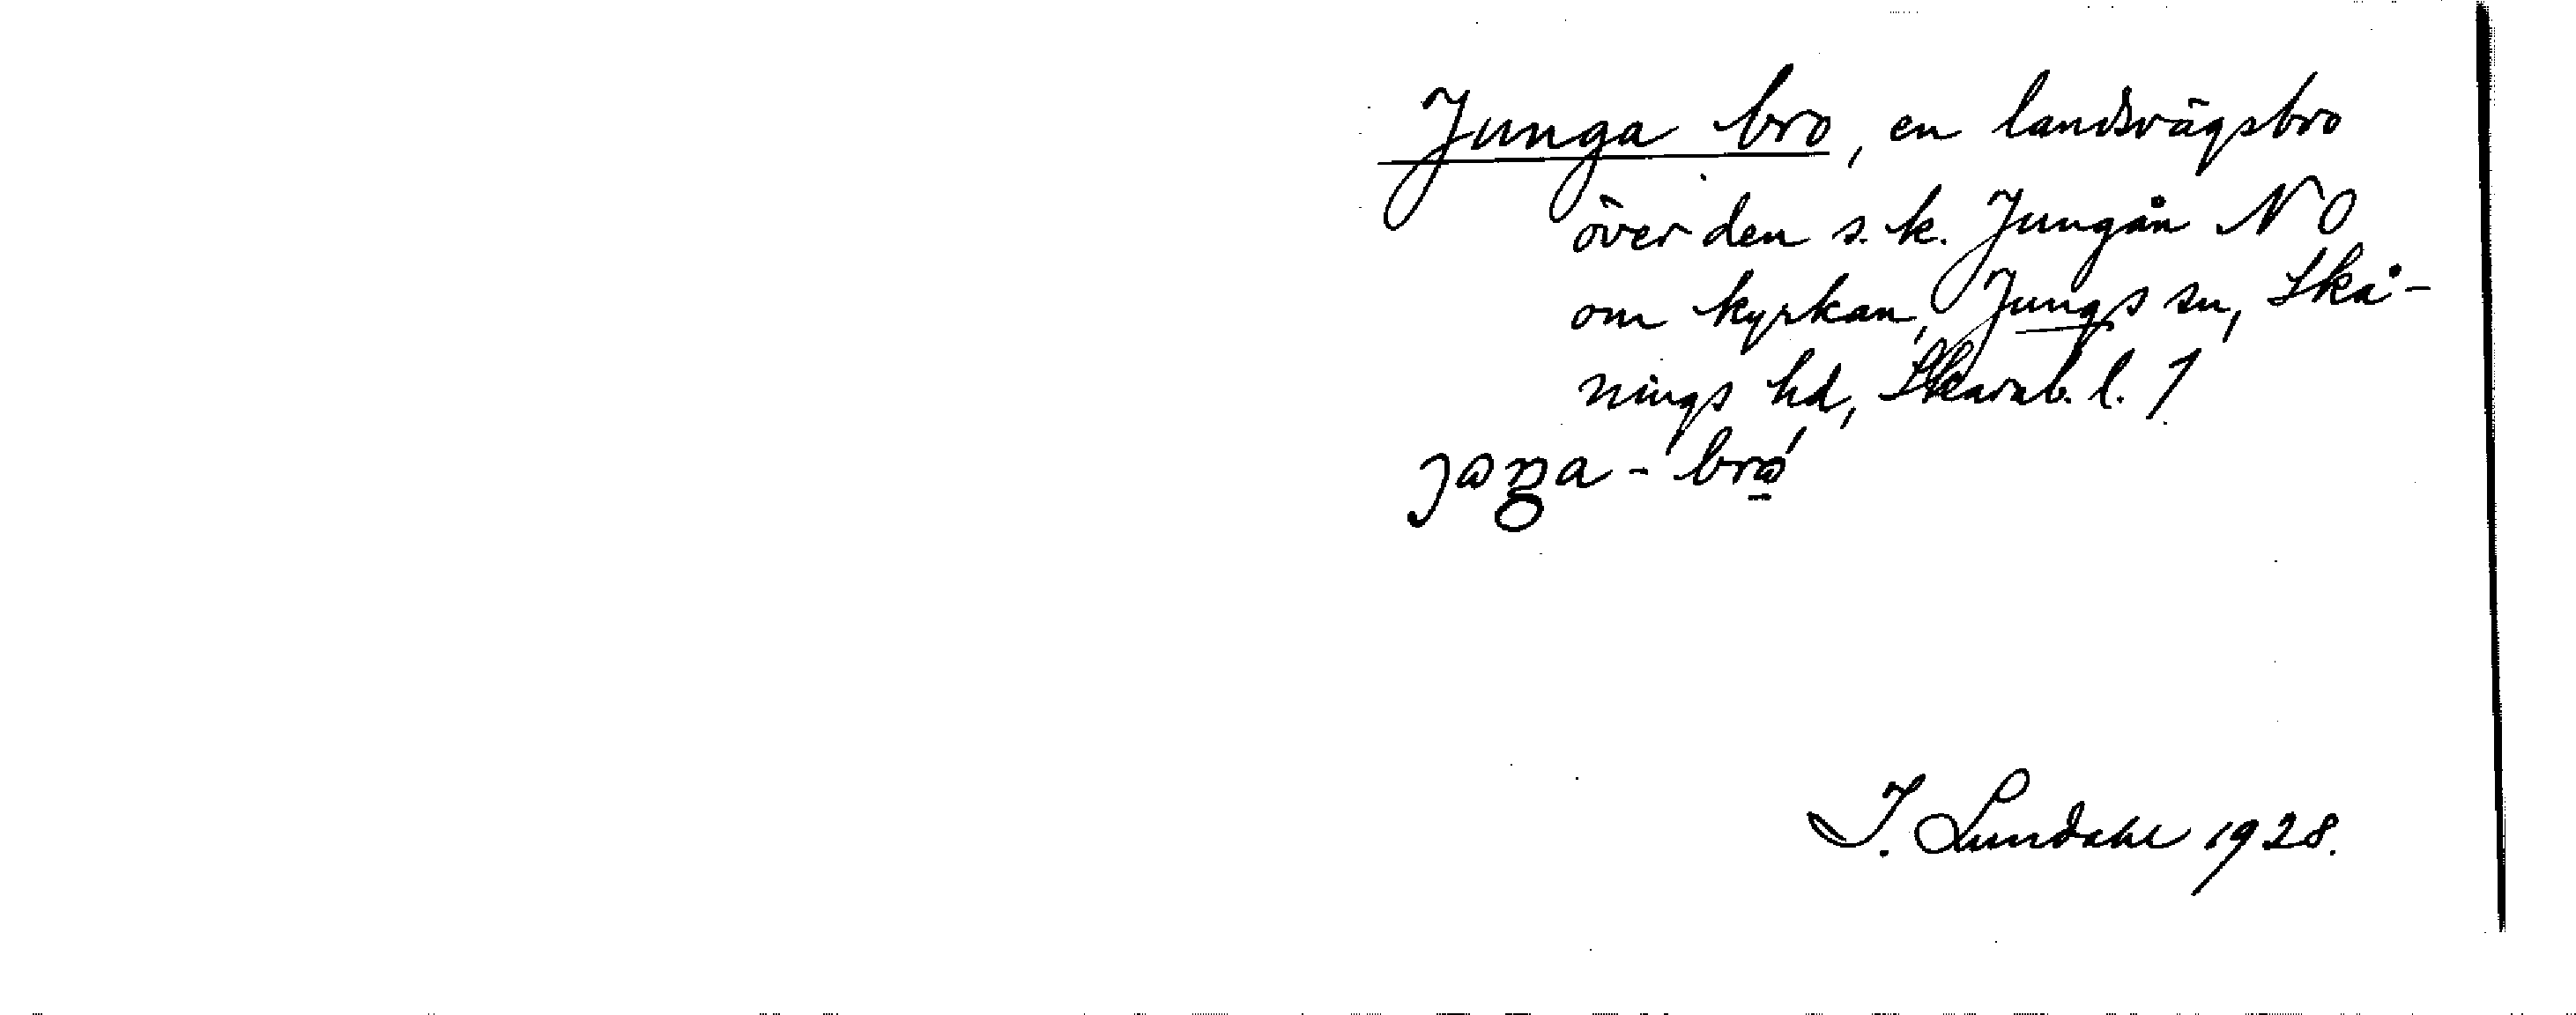 Junga bro, en landsvägsbro
över den s.k. Jungån NO
om kyrkan, Jungs sn, Skå-
nings hd, Skarab. l. 1
I. Lundahl 1928.